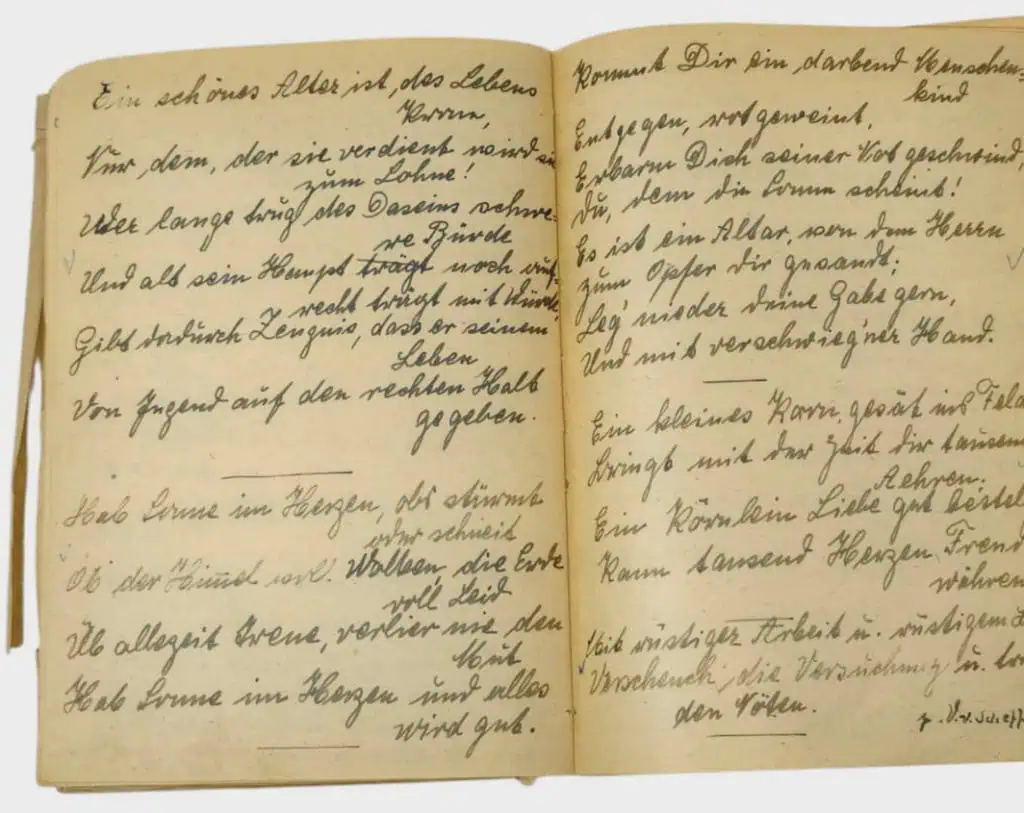 Ein schönes Alter ist, des Lebens
Krone,
Nur dem, der sie verdient wird sie
zum Lohne!
Wer lange trug des Daseins schwe-
re Bürde
Und alt sein Haupt trägt noch auf-
recht trägt mit Würde,
Gibt dadurch Zeugnis, dass er seinem
Leben
Von Jugend auf den rechten Halt
gegeben.
Hab Sonne im Herzen, obs stürmt
oder schneit
Ob der Himmel voll Wolken, die Erde
voll Leid
Üb allezeit Treue, verlier nie den
Mut
Hab Sonne im Herzen und alles
wird gut.
Kommt Dir ein darbend Menschen-
kind
Entgegen, rotgeweint,
Erbarm Dich seiner Not geschwind,
Du, dem die Sonne scheint!
Es ist ein Altar, von dem Herrn
zum Opfer dir gesandt;
Leg' nieder deine Gabe gern,
Und mit verschwieg'ner Hand.
Ein kleines Korn, gesät ins Feld
Bringt mit der Zeit dir tausend
Aehren.
Ein Körnlein Liebe gut bestel
Kann tausend Herzen Freud
währen
Mit rüstiger Arbeit u. rüstigem
Verscheuch' die Versuchung u.
den Nöten.